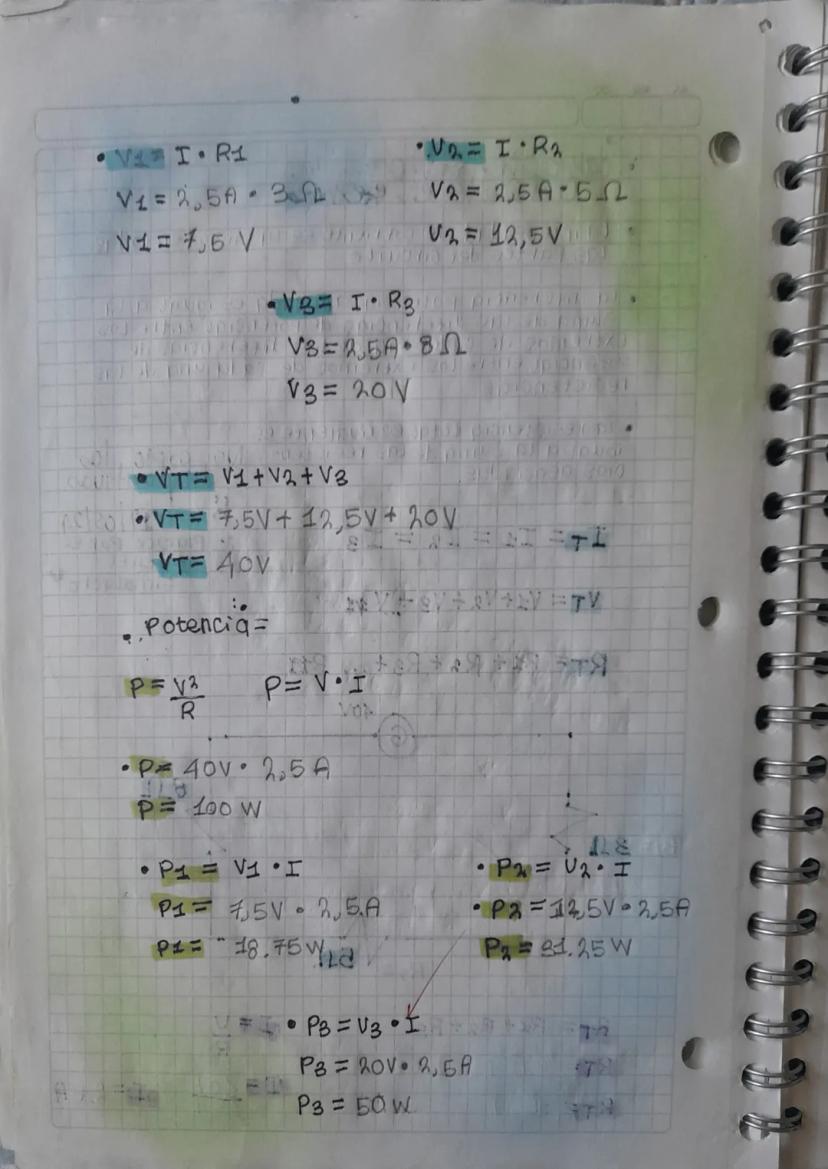 • V1= I • R1
V1 = 2,5A • 3Ω
V1 = 7,5 V
• V2= I • R2
V2 = 2,5A • 5Ω
V2 = 12,5V
• V3= I • R3
V3 = 2,5A • 8Ω
V3 = 20V
• VT= V1+V2+V3
• VT= 7,5V+ 12,5V+ 20V
VT= 40V
• Potencia=
P= V²/R P= V•I
• P= 40V • 2,5A
P= 100 W
• P1= V1 • I
P1= 7,5V • 2,5A
P1= 18.75W
• P2= V2 • I
• P2= 12,5V • 2,5A
P2= 31.25W
• P3 = V3 • I
P3 = 20V • 2,5A
P3 = 50W